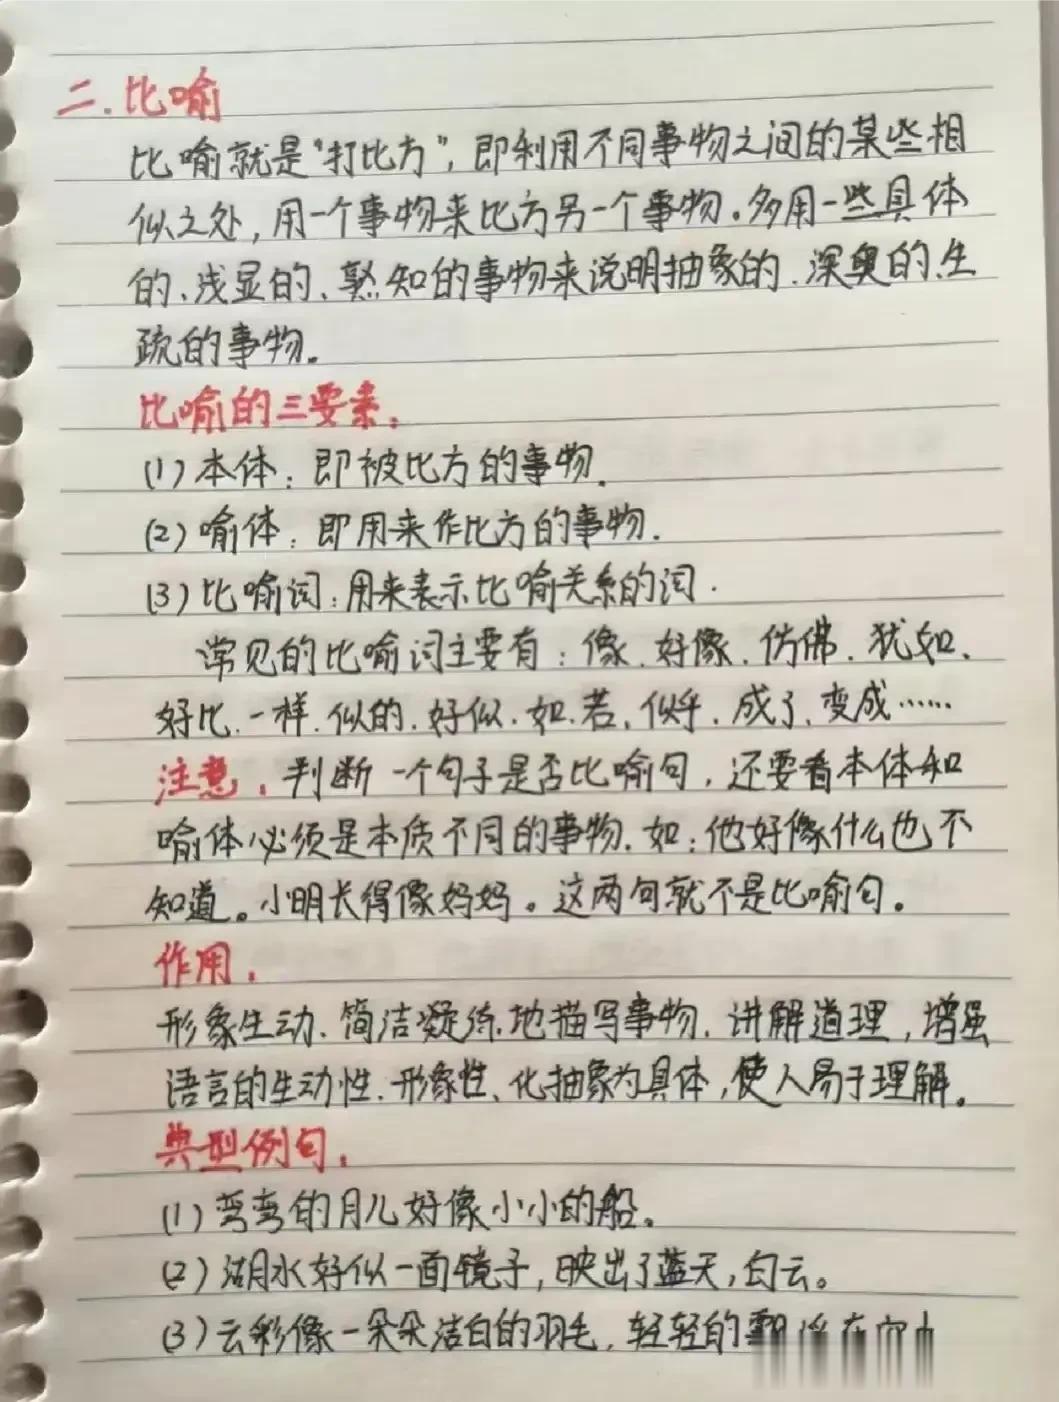 二.比喻
比喻就是“打比方”,即利用不同事物之间的某些相
似之处,用一个事物来比方另一个事物。多用一些具体
的、浅显的、熟知的事物来说明抽象的、深奥的、生
疏的事物。
比喻的三要素:
(1)本体:即被比方的事物.
(2)喻体:即用来作比方的事物.
(3)比喻词:用来表示比喻关系的词.
常见的比喻词主要有:像、好像、仿佛、犹如、
好比、一样、似的、好似、如、若、似乎、成了、变成……
注意:判断一个句子是否比喻句,还要看本体和
喻体必须是本质不同的事物.如:他好像什么也不
知道。小明长得像妈妈。这两句就不是比喻句。
作用:
形象生动、简洁凝练地描写事物、讲解道理,增强
语言的生动性、形象性、化抽象为具体,使人易于理解。
典型例句:
(1)弯弯的月儿好像小小的船。
(2)湖水好似一面镜子,映出了蓝天,白云。
(3)云彩像一朵朵洁白的羽毛,轻轻的